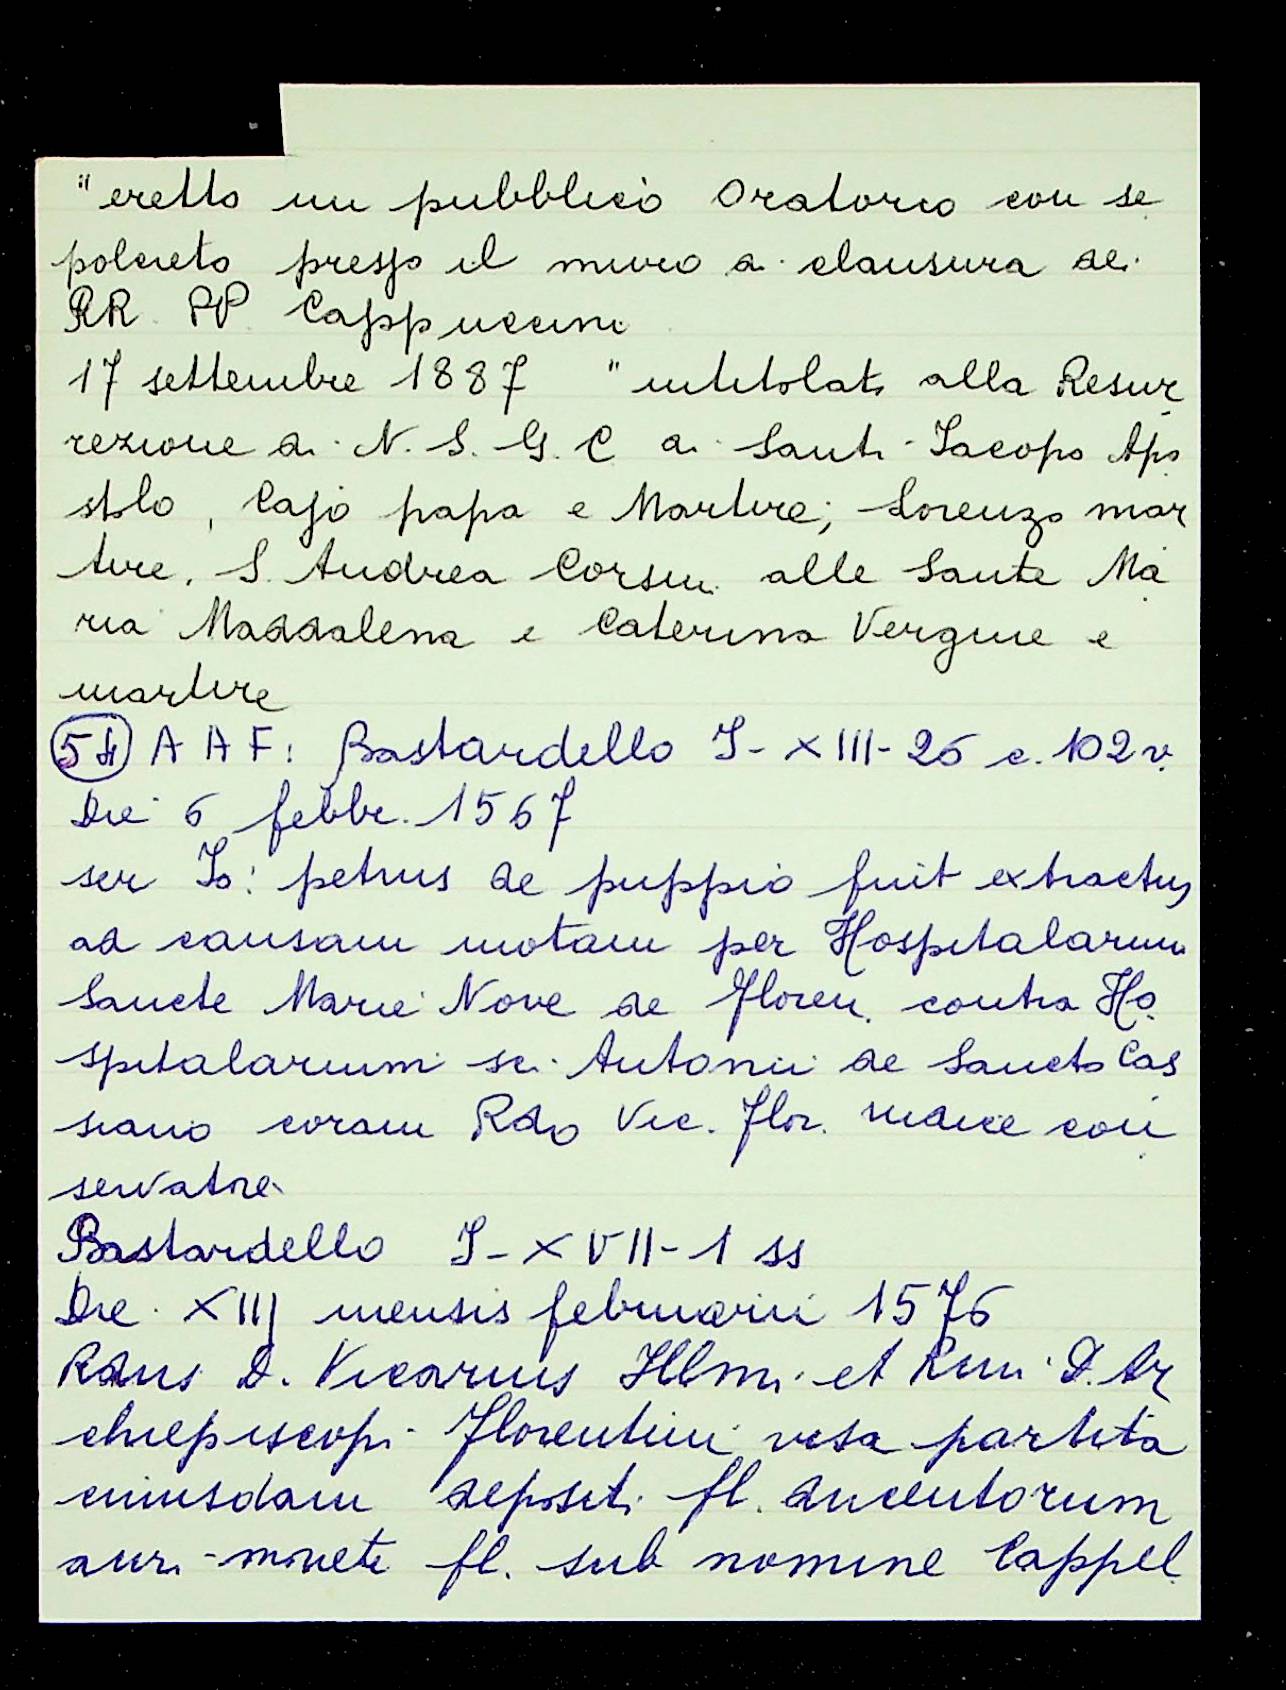 "eretto un pubblico Oratorio con se
polcreto presso il muro di clausura dei
RR. PP. Cappuccini
17 settembre 1887 "intitolato alla Resur
rezione di N. S. G. C. ai Santi Jacopo Apo
stolo, Cajo papa e Martire; Lorenzo mar
tire, S. Andrea Corsini alle Sante Ma
ria Maddalena e Caterina Vergine e
martire
A A F: Bastardello I - XIII - 26 c. 102 v.
Die 6 febbr. 1567
ser Jo: petrus de puppio fuit extractus
ad causam motam per Hospitalarium
Sancte Marie Nove de Floren. contra Ho
spitalarium sci Antonii de Sancto Cas
siano coram Rdo Vic. Flor. iudice con
servatore
Bastardello I - XVII - 1 ss
Die XIIJ mensis februarii 1576
Rdus D. Vicarius Illmi et Rmi D. Ar
chiepiscopi Florentini visa partita
cuiusdam depositi fl. ducentorum
auri monete fl. sub nomine Cappel